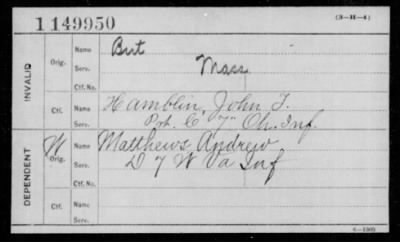 1149950
(3—H—4)
INVALID
Orig.
Name
But
Serv.
Mass
Ctf. No.
Ctf.
Name
Hamblin, John T.
Serv.
Pvt. C 7" Oh. Inf.
DEPENDENT
W
Orig.
Name
Matthews Andrew
Serv.
D 7 W Va Inf
Ctf. No.
Ctf.
Name
Serv.